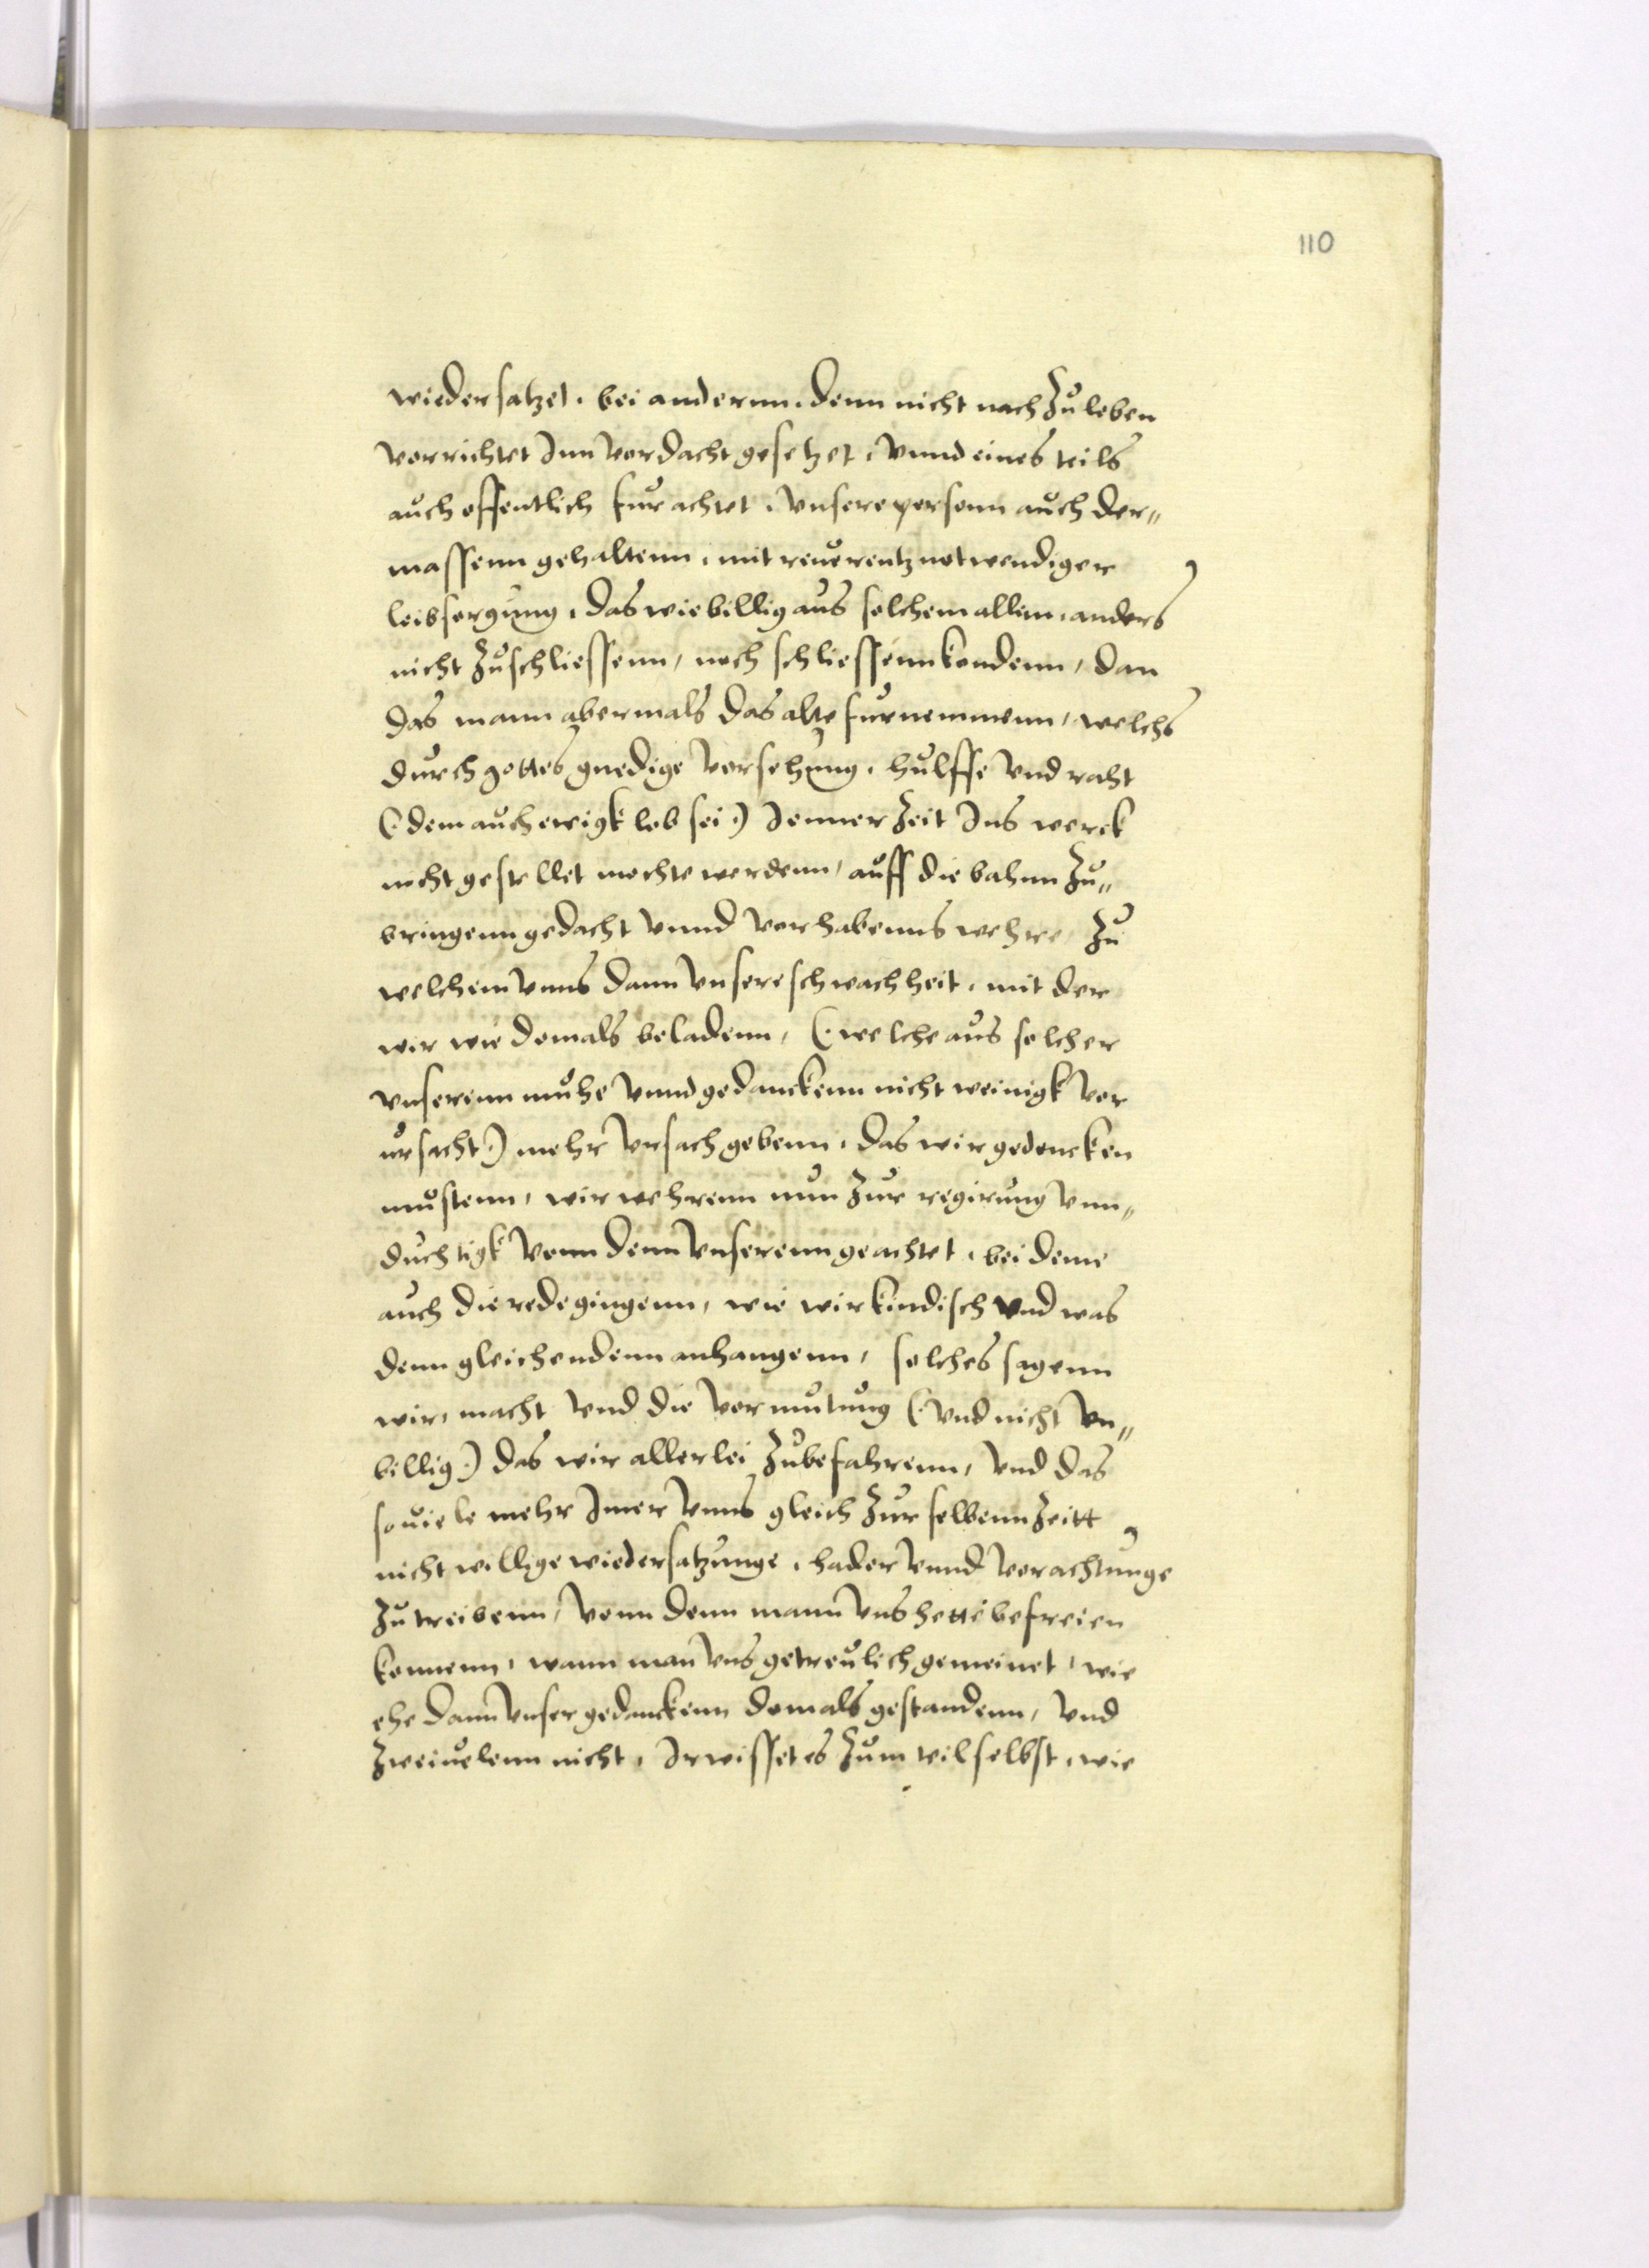 110
wiedersatzet. bei andernn. denn nicht nach zu leben
vorrichtet Inn vordacht gesetzet, vnnd eines teils
auch offentlich furachtet. vnsere personn auch der„
massenn gehaltenn, mit reuerentz notwendiger
leibsorgung, das wie billig aus solchem allem, anders
nicht zuschliessenn, noch schliessenn kondenn, dan
das mann abermals das alte furnemmenn, welchs
durch gottes gnedige vorsehung, hulffe vnd raht
(: dem auch ewigk lob sei :) Jenner zeit Ins werck
nicht gestellet mochte werdenn, auff die bahnn zu„
bringenn gedacht vnnd vorhabenns wehre, zu
welchem vnns dann vnsere schwachheit, mit der
wir wie domals beladenn, (: welche aus solcher
vnserenn muhe vnnd gedanckenn nicht weinigk vor
ursacht :) mehr vrsach gebenn, das wir gedencken
mustenn, wir wehrenn nun zur regirung vnn„
duchtigk vonn denn vnserenn geachtet, bei deme
auch die rede gingenn, wie wir kindisch vnd was
denn gleichendenn anhangenn, solches sagenn
wir, macht vnd die vormutung (: vnd nicht vn„
billig :) das wir allerlei zubefahrenn, vnd das
souiele mehr Imer vnns gleich zur selbenn zeitt
nicht willige wiedersatzunge, hader vnnd vorachtunge
zu treibenn, vonn denn mann vns hette befreien
konnenn, wann man vns getreulich gemeinet, wie
ehe dann vnser gedanckenn domals gestandenn, vnd
zweiuelenn nicht, Ir wisset es zum teil selbst, wie